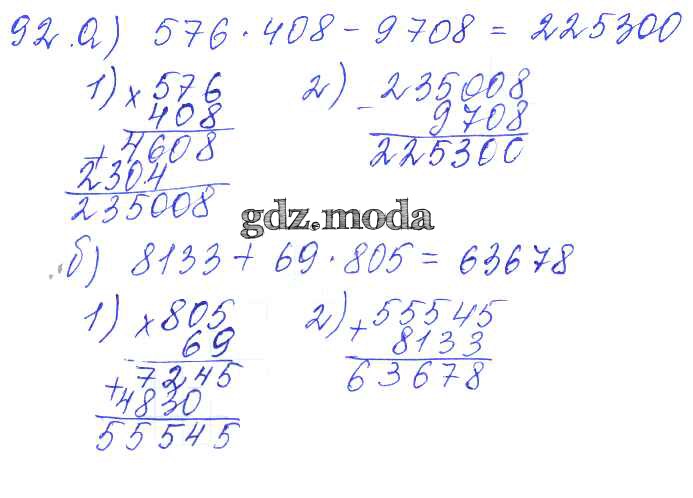 92.а) 576 · 408 - 9708 = 225300
1) × 576
408
+ 4608
2304
235008
2) - 235008
9708
225300
gdz.moda
б) 8133 + 69 · 805 = 63678
1) × 805
69
+ 7245
4830
55545
2) + 55545
8133
63678